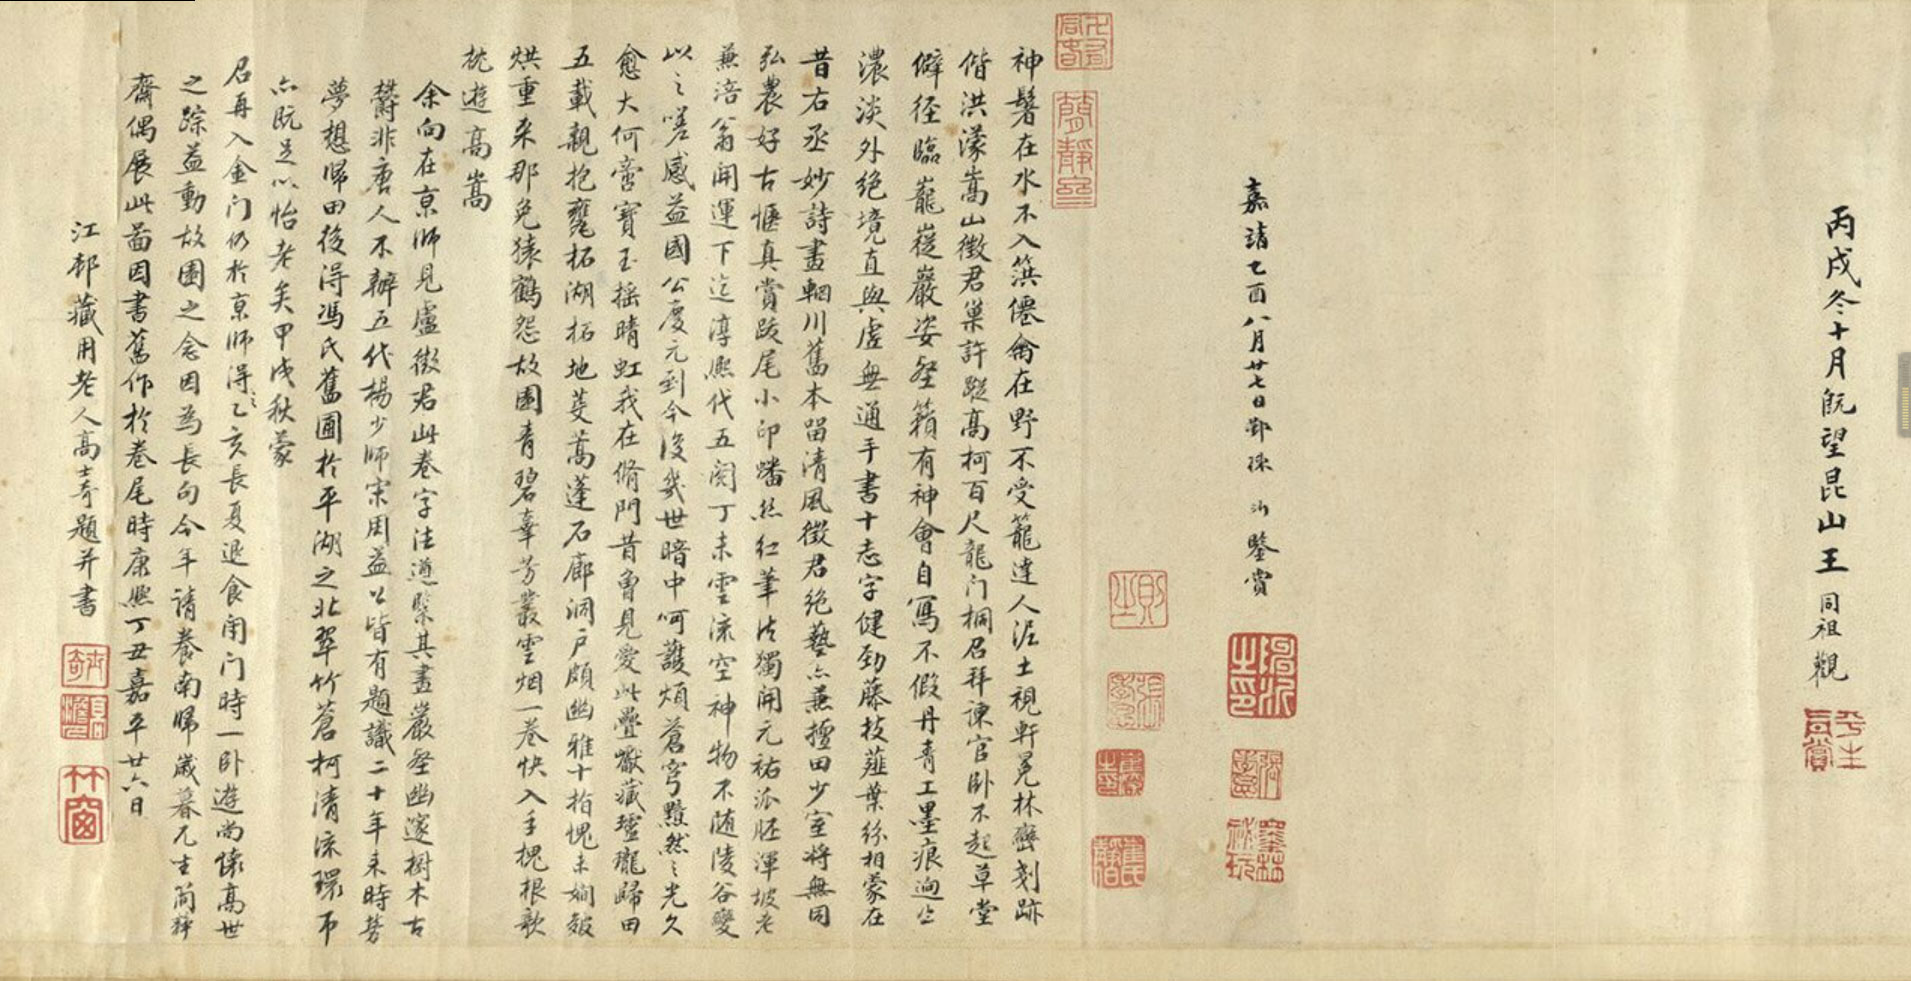 丙戌冬十月既望昆山王同祖觀
嘉靖乙酉八月廿七日鄞孫沐鑒賞
神龜在水不入筮僊禽在野不受籠達人泥土視軒冕林巒刻跡
偕洪濛嵩山徵君巢許蹤高柯百尺龍门桐召拜諫官卧不起草堂
僻径臨巃嵸巖姿壑籟有神會自寫不假丹青工墨痕迥出
濃淡外绝境直與虛無通手書十志字健勁藤枝薤葉紛相蒙在
昔右丞妙詩畫輞川舊本留清風徵君绝藝亦兼擅田少室將無同
弘農好古愜真賞跋尾小印蟠絲紅筆法獨開元祐派胚渾坡老
兼涪翁開運下迄淳熙代五閱丁未雲流空神物不随陵谷變
以之嗟感益國公慶元到今複幾世暗中呵護煩蒼穹黯然之光久
愈大何啻寶玉摇晴虹我在脩門昔曾見愛此疊巘藏瓏瓏歸田
五載親抱甕拓湖拓地芟蒿蓬石廊洞户頗幽雅十指愧未婣皴
烘重来那免猿鶴怨故園青碧牽芳叢雲烟一卷快入手槐根欹
枕遊高嵩
余向在京師見盧徵君此卷字法遒緊其畫巖壑幽邃樹木古
欝非唐人不辦五代楊少師宋周益公皆有題識二十年来時勞
夢想歸田後得馮氏舊圃於平湖之北翠竹蒼柯清流環帀
亦既足以怡老矣甲戌秋蒙
召再入金门仍於京師得之乙亥長夏退食閉门時一卧遊尚懷高世
之踪益動故園之念因為長句今年請養南歸歲暮凡坐簡静
齋偶展此啚因書舊作於卷尾時康熙丁丑嘉平廿六日
江邨藏用老人高士奇題并書